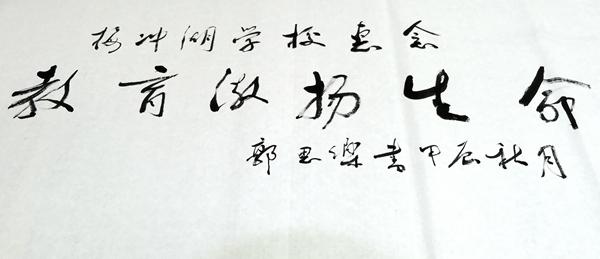 梅冲湖学校惠念
教育激扬生命
郭思乐书甲辰秋月